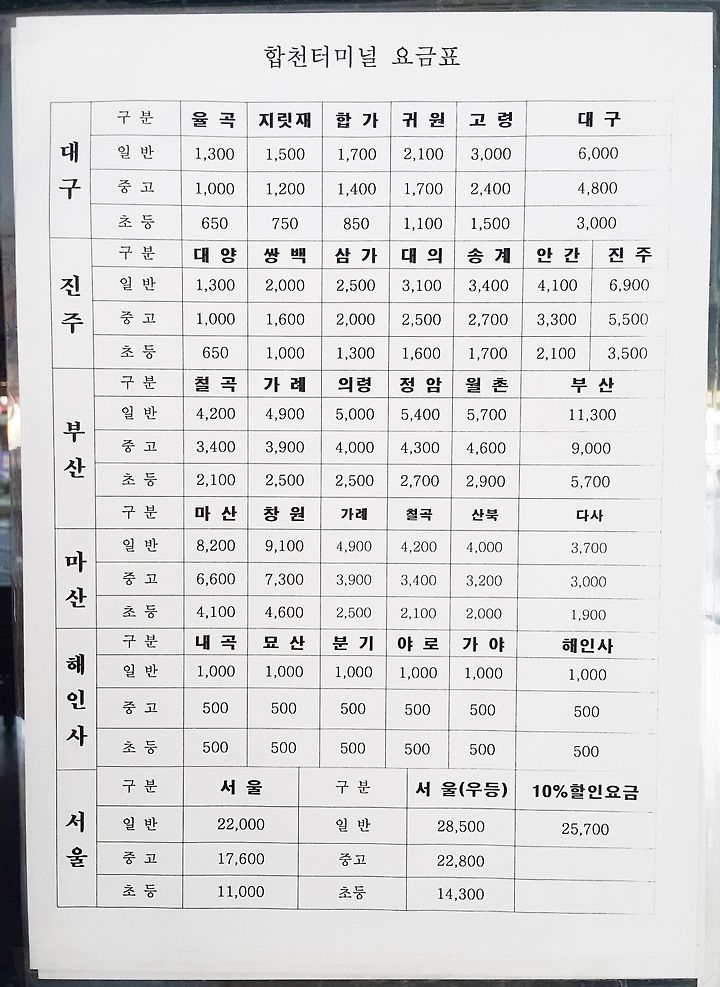 합천터미널 요금표
대구
구 분 율 곡 지릿재 합 가 귀 원 고 령 대 구
일 반 1,300 1,500 1,700 2,100 3,000 6,000
중 고 1,000 1,200 1,400 1,700 2,400 4,800
초 등 650 750 850 1,100 1,500 3,000
진주
구 분 대 양 쌍 백 삼 가 대 의 송 계 안 간 진 주
일 반 1,300 2,000 2,500 3,100 3,400 4,100 6,900
중 고 1,000 1,600 2,000 2,500 2,700 3,300 5,500
초 등 650 1,000 1,300 1,600 1,700 2,100 3,500
부산
구 분 칠 곡 가 례 의령 정 암 월 촌 부 산
일 반 4,200 4,900 5,000 5,400 5,700 11,300
중 고 3,400 3,900 4,000 4,300 4,600 9,000
초 등 2,100 2,500 2,500 2,700 2,900 5,700
마산
구 분 마 산 창 원 가례 칠곡 산북 다사
일 반 8,200 9,100 4,900 4,200 4,000 3,700
중 고 6,600 7,300 3,900 3,400 3,200 3,000
초 등 4,100 4,600 2,500 2,100 2,000 1,900
해인사
구 분 내 곡 묘 산 분 기 야 로 가 야 해인사
일 반 1,000 1,000 1,000 1,000 1,000 1,000
중 고 500 500 500 500 500 500
초 등 500 500 500 500 500 500
서울
구 분 서 울 구 분 서 울(우등) 10%할인요금
일 반 22,000 일 반 28,500 25,700
중 고 17,600 중고 22,800
초 등 11,000 초등 14,300